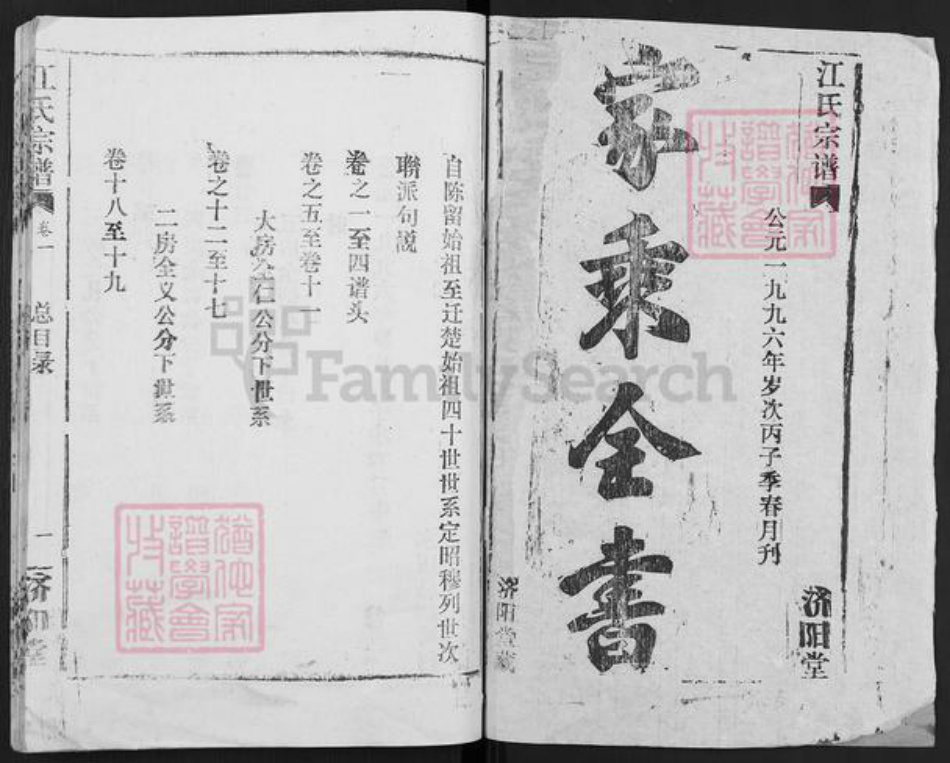 江氏宗谱
济阳堂
公元一九九六年岁次丙子季春月刊
家乘全书
济阳堂藏
自陈留始祖至迁楚始祖四十世世系定昭穆列世次
聨派句説
卷之一至四谱头
卷之五至卷十一
大房全仁公分下世系
卷之十二至十七
二房全义公分下世系
卷十八至十九
江氏宗谱
卷一
总目录
一
济阳堂
FamilySearch